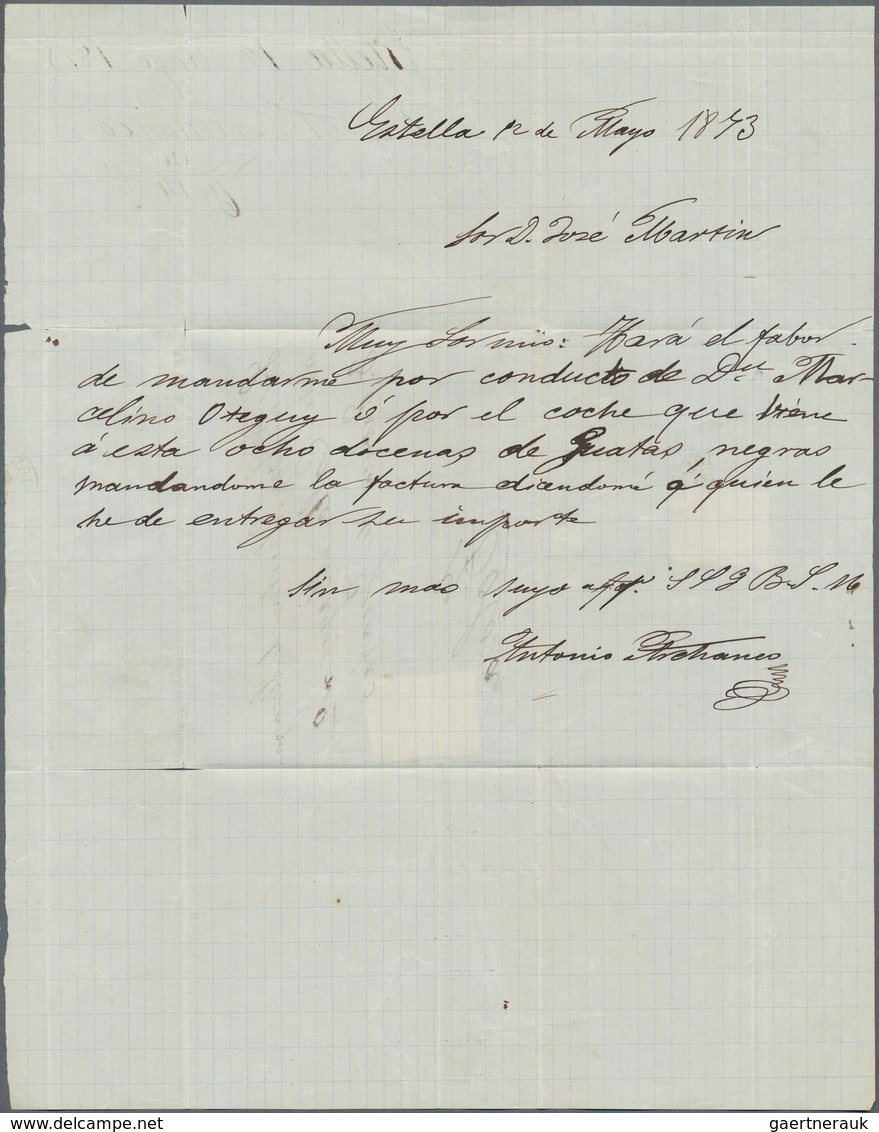 Estella 12 de Mayo 1873
Sor D. José Martin
Muy Sor mio: Hará el fabor
de mandarme por conducto de Dn Mar-
celino Oteguy ó por el coche que viene
á esta ocho docenas de Guatas negras
mandandome la factura diciendome á quien le
he de entregar su importe
Sin mas suyo affo. S S Q B. S. M
Antonio
gaertnerauk